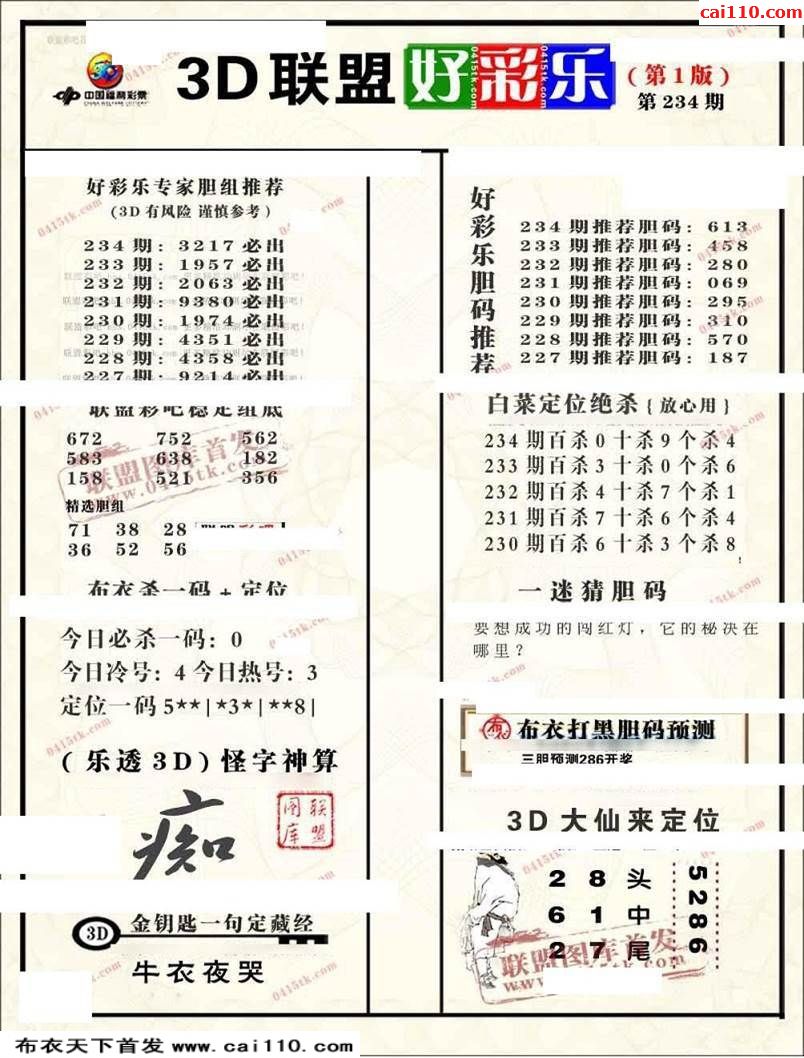 cai110.com
中国福利彩票
CHINA WELFARE LOTTERY
3D联盟好彩乐
(第1版)
第234期
好彩乐专家胆组推荐
(3D有风险 谨慎参考)
234期: 3217必出
233期: 1957必出
232期: 2063必出
231期: 9380必出
230期: 1974必出
229期: 4351必出
228期: 4358必出
227期: 9214必出
联盟彩吧稳定组底
672 752 562
583 638 182
158 521 356
精选胆组
71 38 28
36 52 56
布衣杀一码+定位
今日必杀一码: 0
今日冷号: 4 今日热号: 3
定位一码 5**|*3*|**8|
(乐透3D)怪字神算
痴
联盟图库
3D 金钥匙一句定藏经
牛衣夜哭
好彩乐胆码推荐
234期推荐胆码: 613
233期推荐胆码: 458
232期推荐胆码: 280
231期推荐胆码: 069
230期推荐胆码: 295
229期推荐胆码: 310
228期推荐胆码: 570
227期推荐胆码: 187
白菜定位绝杀{放心用}
234期百杀0十杀9个杀4
233期百杀3十杀0个杀6
232期百杀4十杀7个杀1
231期百杀7十杀6个杀4
230期百杀6十杀3个杀8
一迷猜胆码
要想成功的闯红灯，它的秘决在
哪里？
布衣打黑胆码预测
三胆预测286开奖
3D大仙来定位
2 8 头
6 1 中
2 7 尾
5286
联盟图库首发
www.0415tk.com
布衣天下首发 www.cai110.com